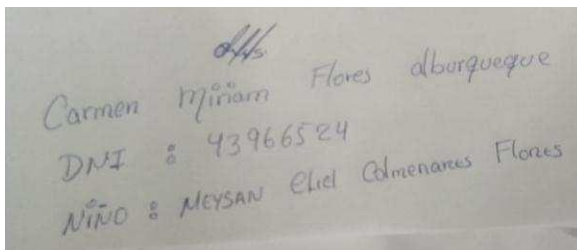 Carmen Miriam Flores alburqueque
DNI : 43966524
NIÑO : MEYSAN Eliel Colmenares Flores